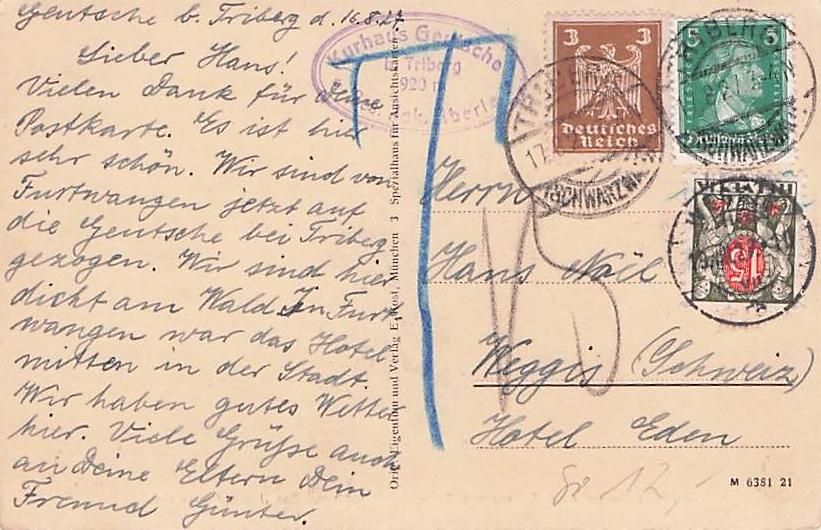 Geutsche b. Triberg d. 16.8.27
Lieber Hans!
Vielen Dank für Deine
Postkarte. Es ist hier
sehr schön. Wir sind von
Furtwangen jetzt auf
die Geutsche bei Triberg
gezogen. Wir sind hier
dicht am Wald. In Furt
wangen war das Hotel
mitten in der Stadt.
Wir haben gutes Wetter
hier. Viele Grüße auch
an Deine Eltern Dein
Freund Günter.
Kurhaus Geutsche
b. Triberg
920 m
Orig. Eigentum und Verlag E. Rost, München 3 Spezialhaus für Ansichtskarten
T
15
3 3
Deutsches
Reich
5 5
TRIBERG
17
(SCHWARZWALD)
TRIBERG
HELVETIA
15
Herrn
Hans Noël
Weggis (Schweiz)
Hotel Eden
M 6381 21
12,-